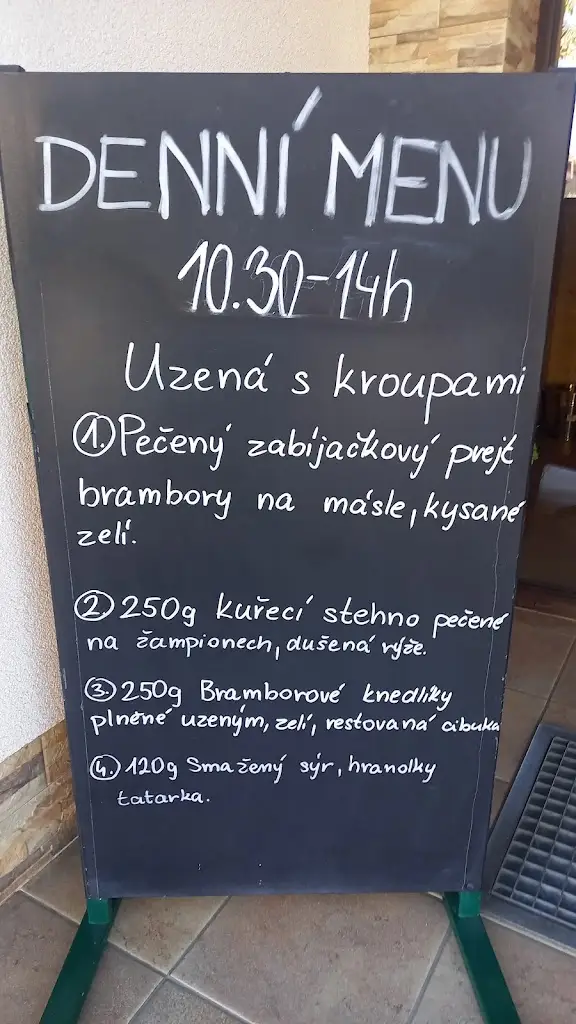 DENNÍ MENU
10.30-14h
Uzená s kroupami
1. Pečený zabíjačkový prejt
brambory na másle, kysané
zelí.
2 250g kuřecí stehno pečené
na žampionech, dušená rýže.
3. 250g Bramborové knedlíky
plněné uzeným, zelí, restovaná cibulka
4. 120g Smažený sýr, hranolky
tatarka.